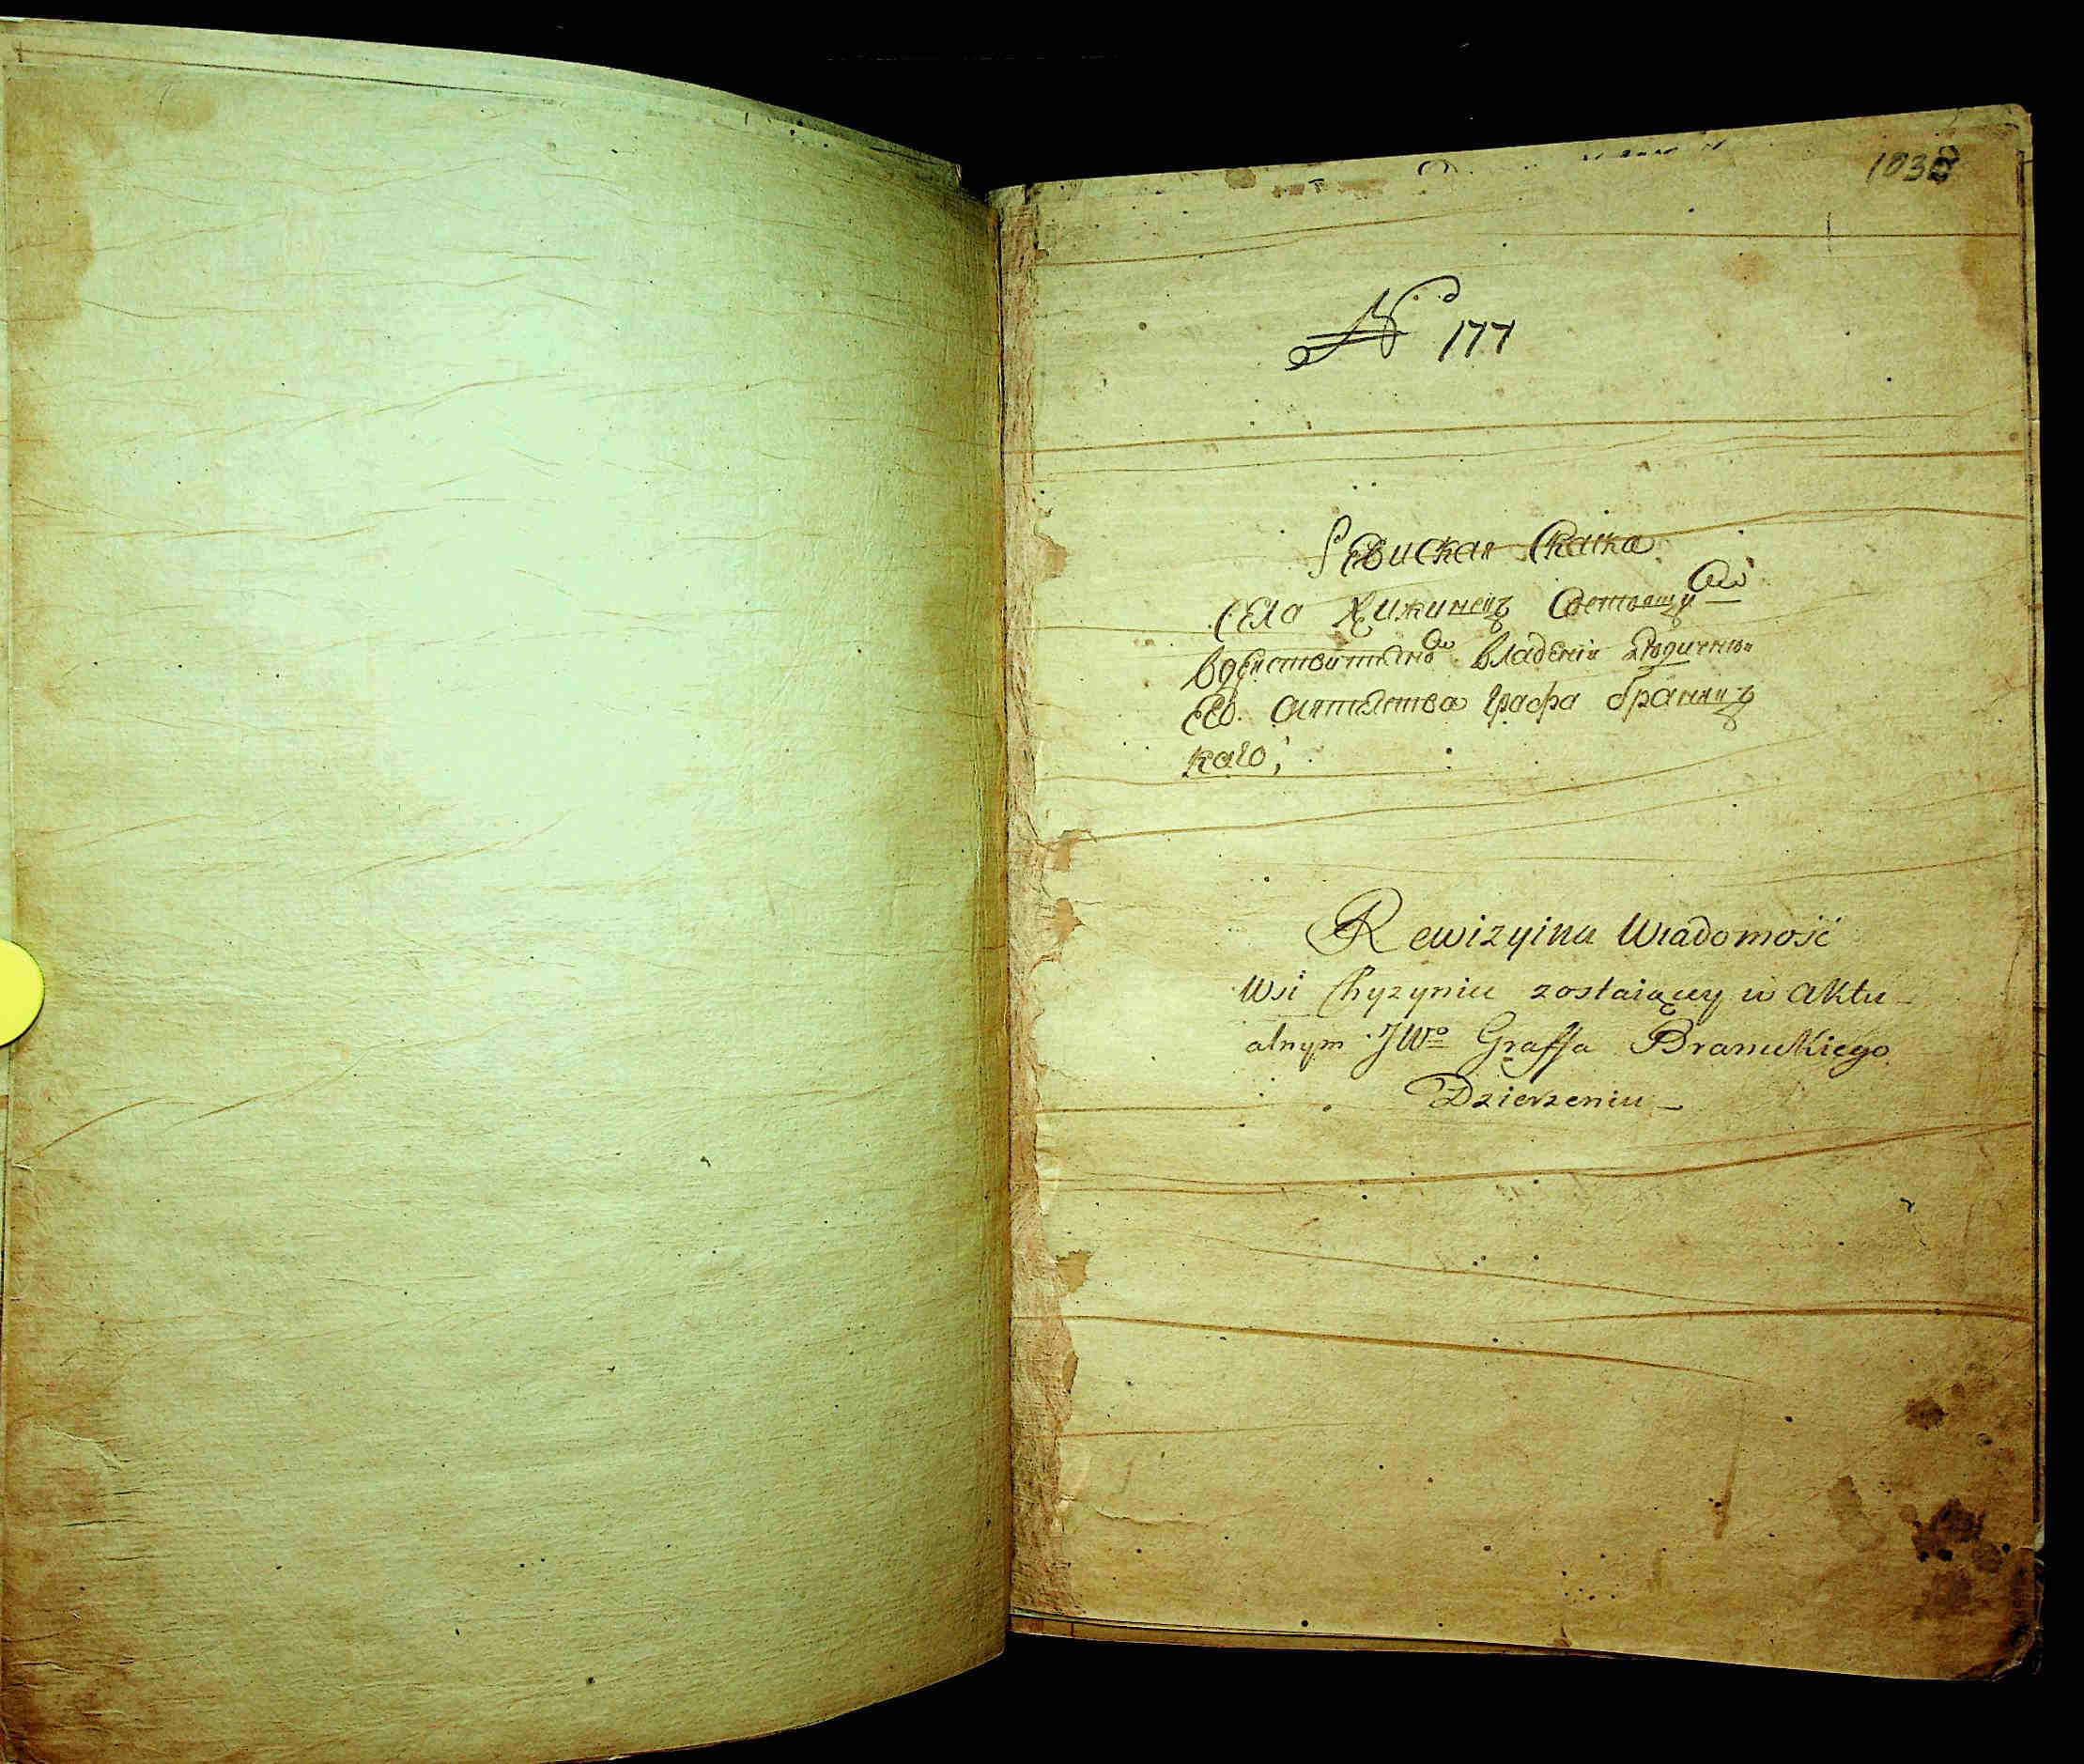 1038
№ 177
Ревиская Скаска
Села Хижинец Состоящ
в действительно Владении
Его Сиятелства Графа Браниц
каго;
Rewizyina Wiadomość
Wsi Chyzyniec zostaiącey w Aktu-
alnym JWo Graffa Branickiego
Dzierzeniu_